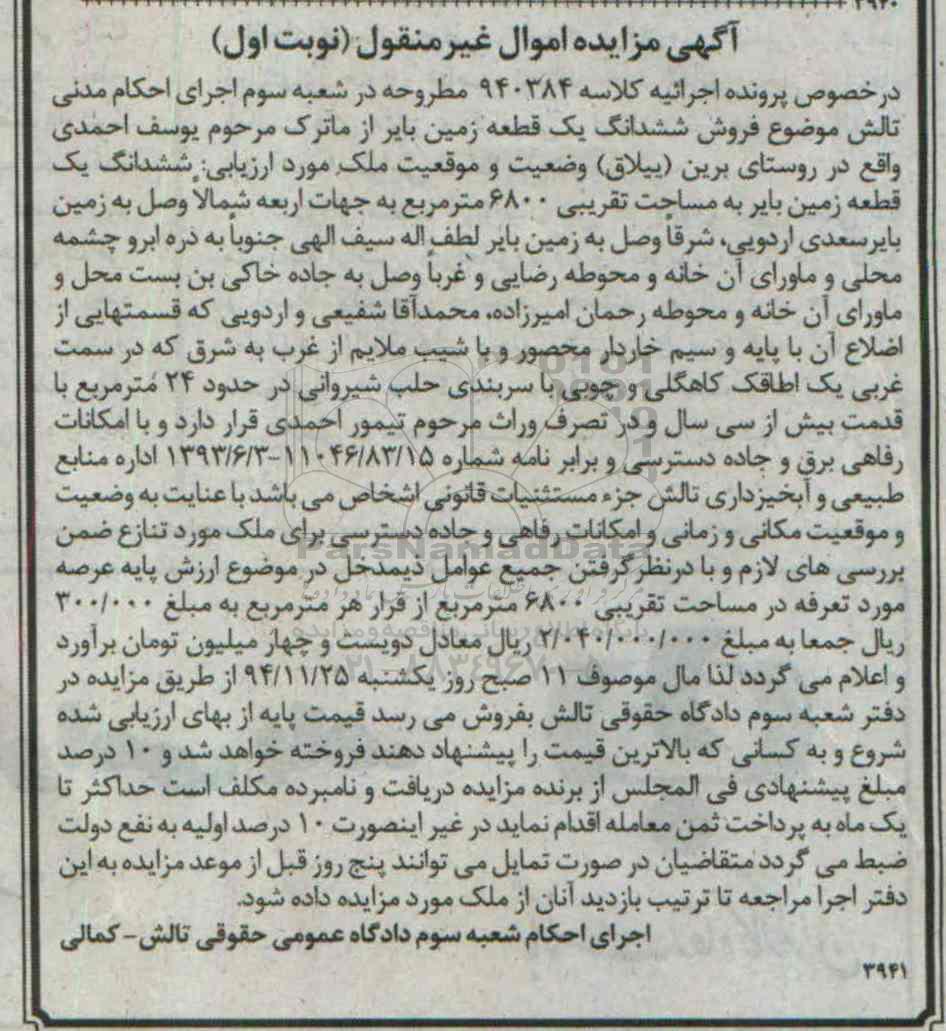 ۳۹۴۰
آگهی مزایده اموال غیرمنقول (نوبت اول)
درخصوص پرونده اجرائیه کلاسه ۹۴۰۳۸۴ مطروحه در شعبه سوم اجرای احکام مدنی
تالش موضوع فروش ششدانگ یک قطعه زمین بایر از ماترک مرحوم یوسف احمدی
واقع در روستای برین (ییلاق) وضعیت و موقعیت ملک مورد ارزیابی: ششدانگ یک
قطعه زمین بایر به مساحت تقریبی ۶۸۰۰ مترمربع به جهات اربعه شمالاً وصل به زمین
بایرسعدی اردویی، شرقاً وصل به زمین بایر لطف اله سیف الهی جنوباً به دره ابرو چشمه
محلی و ماورای آن خانه و محوطه رضایی و غرباً وصل به جاده خاکی بن بست محل و
ماورای آن خانه و محوطه رحمان امیرزاده، محمدآقا شفیعی و اردویی که قسمتهایی از
اضلاع آن با پایه و سیم خاردار محصور و با شیب ملایم از غرب به شرق که در سمت
غربی یک اطاقک کاهگلی و چوبی با سربندی حلب شیروانی در حدود ۲۴ مترمربع با
قدمت بیش از سی سال و در تصرف وراث مرحوم تیمور احمدی قرار دارد و با امکانات
رفاهی برق و جاده دسترسی و برابر نامه شماره ۱۱۰۴۶/۸۳/۱۵-۱۳۹۳/۶/۳ اداره منابع
طبیعی و آبخیزداری تالش جزء مستثنیات قانونی اشخاص می باشد با عنایت به وضعیت
و موقعیت مکانی و زمانی و امکانات رفاهی و جاده دسترسی برای ملک مورد تنازع ضمن
بررسی های لازم و با درنظرگرفتن جمیع عوامل ذیمدخل در موضوع ارزش پایه عرصه
مورد تعرفه در مساحت تقریبی ۶۸۰۰ مترمربع از قرار هر مترمربع به مبلغ ۳۰۰/۰۰۰
ریال جمعا به مبلغ ۲/۰۴۰/۰۰۰/۰۰۰ ریال معادل دویست و چهار میلیون تومان برآورد
و اعلام می گردد لذا مال موصوف ۱۱ صبح روز یکشنبه ۹۴/۱۱/۲۵ از طریق مزایده در
دفتر شعبه سوم دادگاه حقوقی تالش بفروش می رسد قیمت پایه از بهای ارزیابی شده
شروع و به کسانی که بالاترین قیمت را پیشنهاد دهند فروخته خواهد شد و ۱۰ درصد
مبلغ پیشنهادی فی المجلس از برنده مزایده دریافت و نامبرده مکلف است حداکثر تا
یک ماه به پرداخت ثمن معامله اقدام نماید در غیر اینصورت ۱۰ درصد اولیه به نفع دولت
ضبط می گردد متقاضیان در صورت تمایل می توانند پنج روز قبل از موعد مزایده به این
دفتر اجرا مراجعه تا ترتیب بازدید آنان از ملک مورد مزایده داده شود.
اجرای احکام شعبه سوم دادگاه عمومی حقوقی تالش- کمالی
۳۹۴۱
ParsNamadData